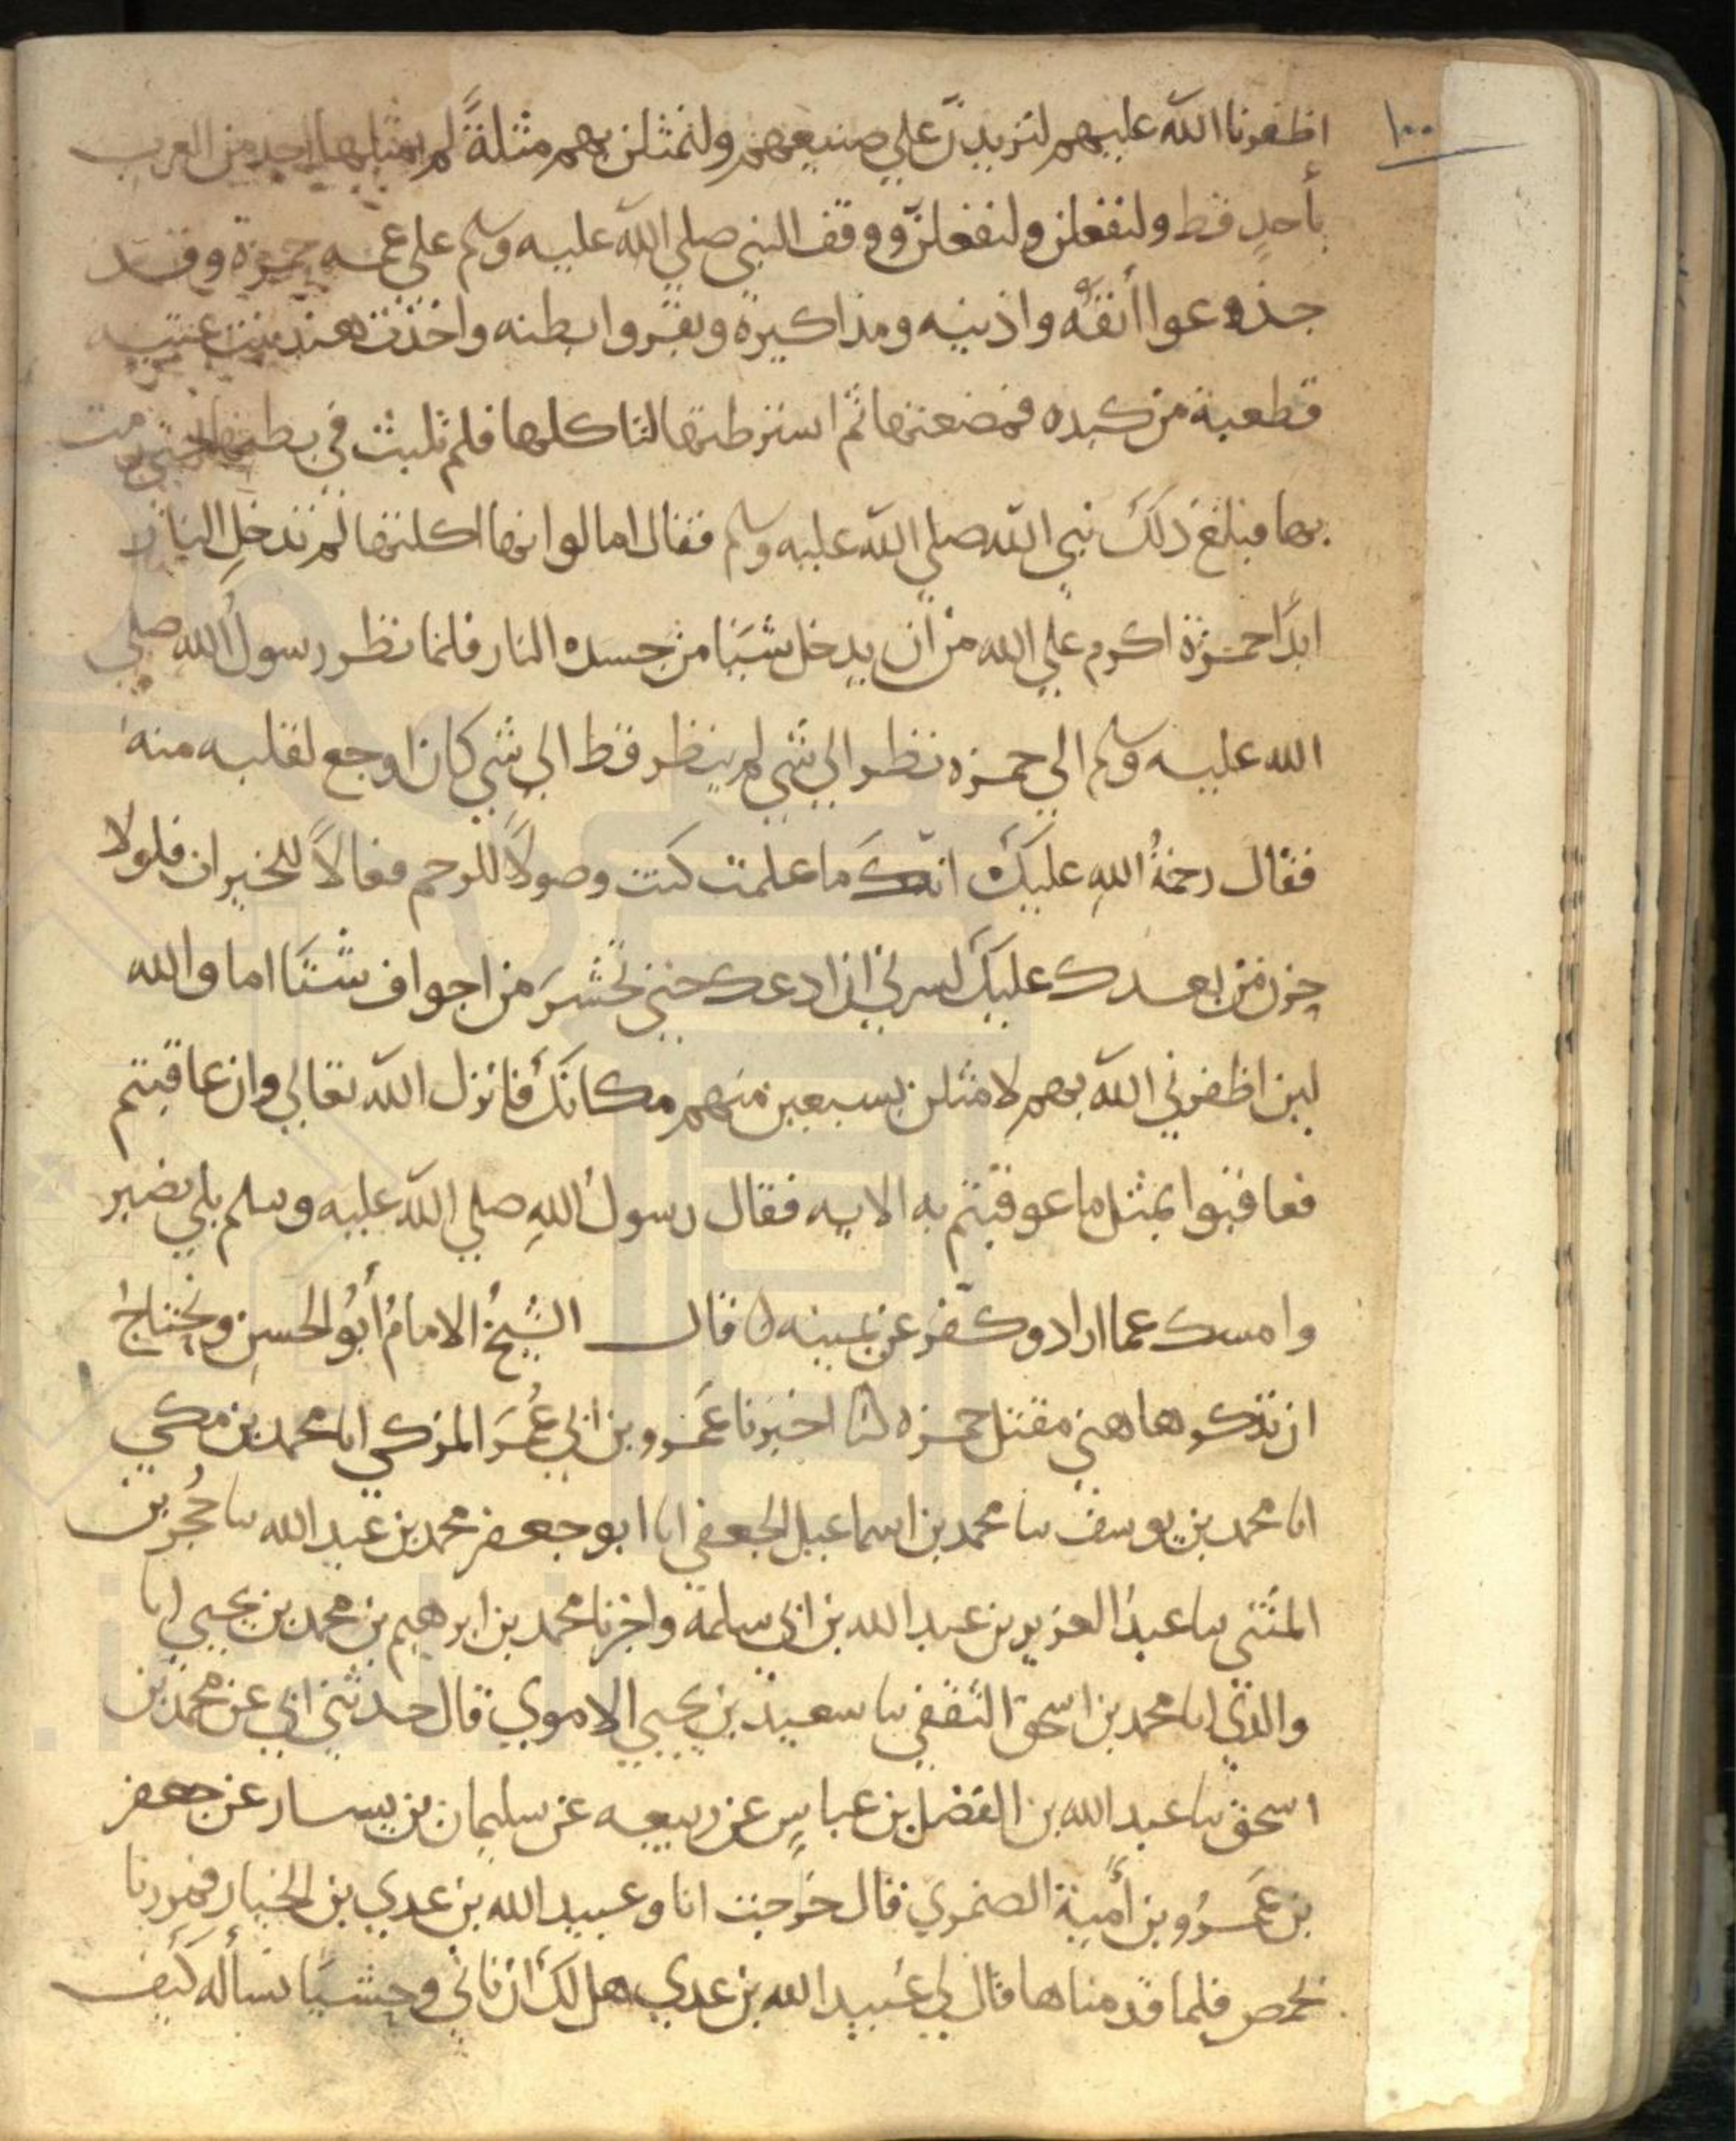 ١٠٠
اظفرنا الله عليهم لنزيدنّ علي صنيعهم ولنمثلن بهم مثلةً لم يمثلها احد من العرب
بأحدٍ قط ولنفعلن ولنفعلنّ ووقف النبي صلي الله عليه وسلم على عمه حمزة وقد
جذعوا أنفه واذنيه ومذاكيره وبقروا بطنه واخذت هند بنت عتبه
قطعية من كبده فمضغتها ثم استرطتها لتاكلها فلم تلبث في بطنها حتي رمت
بها فبلغ ذلك نبي الله صلي الله عليه وسلم فقال اما لو انها اكلتها لم تدخلِ النار
ابدًا حمزة اكرم علي الله من ان يدخل شيئا من جسده النار فلما نظر رسول الله صلي
الله عليه وسلم الي حمزه نظر الي شي لم ينظر قط الي شي كان اوجع لقلبه منه
فقال رحمةُ اللهِ عليك انك ما علمت كنت وصولاً للرحم فعالاً للخيران فلولا
حزن من بعدك عليك لسرني ان ادعك حتي تحشرَ من اجواف شتا اما والله
لين اظفرني الله بهم لامثلن بسبعين منهم مكانك فانزل الله تعالي وان عاقبتم
فعاقبوا بمثل ما عوقبتم به الايه فقال رسولُ اللهِ صلي الله عليه وسلم بلي نصبر
وامسك عما اراد وكفّر عن يمينه ٥ قال الشيخُ الامامُ أبوُ الحسن ونحتاجُ
ان نذكر هاهني مقتل حمزه اخبرنا عَمرو بن ابي عُمرَ المزكي انا محمد بن مكي
انا محمد بن يوسف نا محمد بن اسماعيل الجعفي انا ابو جعفر محمد بن عبد الله نا حُجَر بن
المثني نا عبدُ العزيز بن عبد الله بن ابي سلمة واخبرنا محمد بن ابرهيم بن محمد بن يحيي انا
والدي انا محمد بن اسحق الثقفي نا سعيد بن يحيي الاموي قال حدثني ابي عن محمد بن
اسحق نا عبد الله بن الفضل بن عباسٍ عن ربيعه عن سليمان بن يسار عن جعفر
بن عَمرو بن أمية الضمري قال خرجت انا وعبيد الله بن عدي بن الخيار فمررنا
بحمص فلما قدمناها قال لي عُبيد الله بن عدي هل لك ان ناتي وحشيًا نسأله كيف